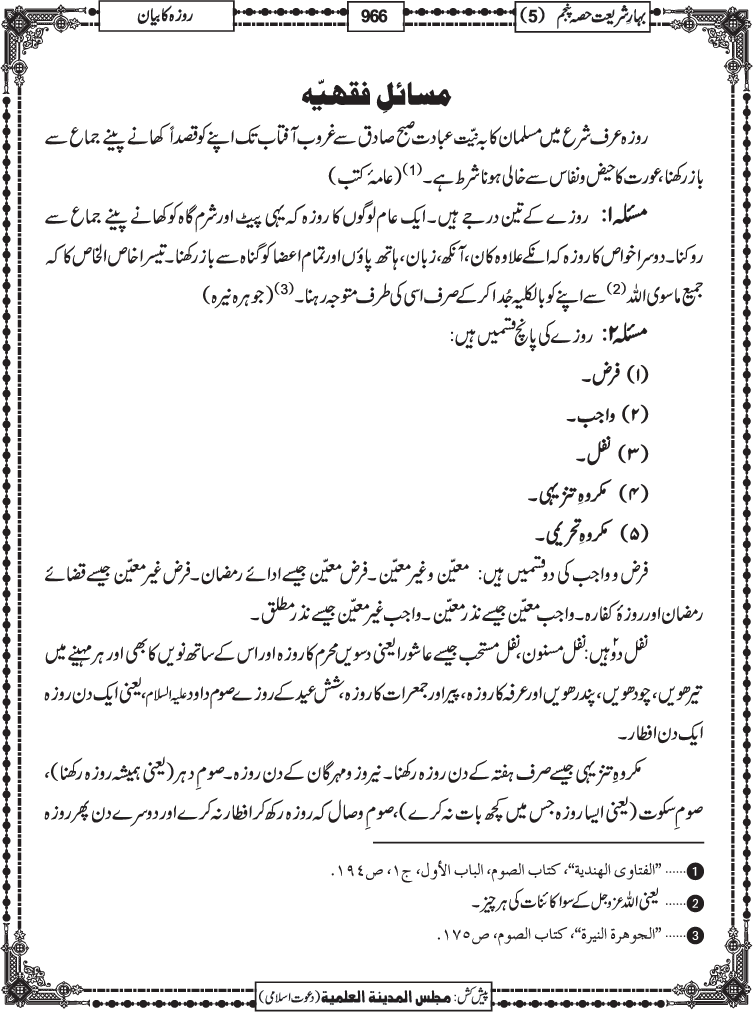 بہار شریعت حصہ پنجم (5)
966
روزہ کا بیان
مسائلِ فقھیّہ
روزہ عرف شرع میں مسلمان کا بہ نیّت عبادت صبح صادق سے غروب آفتاب تک اپنے کو قصداً کھانے پینے جماع سے
باز رکھنا، عورت کا حیض و نفاس سے خالی ہونا شرط ہے۔(1) (عامۂ کتب)
مسئلہ ۱: روزے کے تین درجے ہیں۔ ایک عام لوگوں کا روزہ کہ یہی پیٹ اور شرم گاہ کو کھانے پینے جماع سے
روکنا۔ دوسرا خواص کا روزہ کہ انکے علاوہ کان، آنکھ، زبان، ہاتھ پاؤں اور تمام اعضا کو گناہ سے باز رکھنا۔ تیسرا خاص الخاص کا کہ
جمیع ماسوی اللہ (2) سے اپنے کو بالکلیہ جُدا کرکے صرف اسی کی طرف متوجہ رہنا۔(3) (جوہرہ نیرہ)
مسئلہ ۲: روزے کی پانچ قسمیں ہیں:
(۱) فرض۔
(۲) واجب۔
(۳) نفل۔
(۴) مکروہِ تنزیہی۔
(۵) مکروہِ تحریمی۔
فرض و واجب کی دو قسمیں ہیں: معیّن و غیر معیّن۔ فرض معیّن جیسے ادائے رمضان۔ فرض غیر معیّن جیسے قضائے
رمضان اور روزۂ کفارہ۔ واجب معیّن جیسے نذر معیّن۔ واجب غیر معیّن جیسے نذر مطلق۔
نفل دو۲ ہیں: نفل مسنون، نفل مستحب جیسے عاشورا یعنی دسویں محرم کا روزہ اور اس کے ساتھ نویں کا بھی اور ہر مہینے میں
تیرھویں، چودھویں، پندرھویں اور عرفہ کا روزہ، پیر اور جمعرات کا روزہ، شش عید کے روزے صوم داود علیہ السلام، یعنی ایک دن روزہ
ایک دن افطار۔
مکروہِ تنزیہی جیسے صرف ہفتہ کے دن روزہ رکھنا۔ نیروز و مہرگان کے دن روزہ۔ صومِ دہر (یعنی ہمیشہ روزہ رکھنا)،
صومِ سکوت (یعنی ایسا روزہ جس میں کچھ بات نہ کرے)، صومِ وصال کہ روزہ رکھ کر افطار نہ کرے اور دوسرے دن پھر روزہ
1 ...... "الفتاوی الھندیة"، کتاب الصوم، الباب الأول، ج۱، ص۱۹٤.
2 ...... یعنی اللہ عزوجل کے سوا کائنات کی ہر چیز۔
3 ...... "الجوھرة النیرة"، کتاب الصوم، ص۱۷۵.
پیش کش: مجلس المدینة العلمیة (دعوت اسلامی)